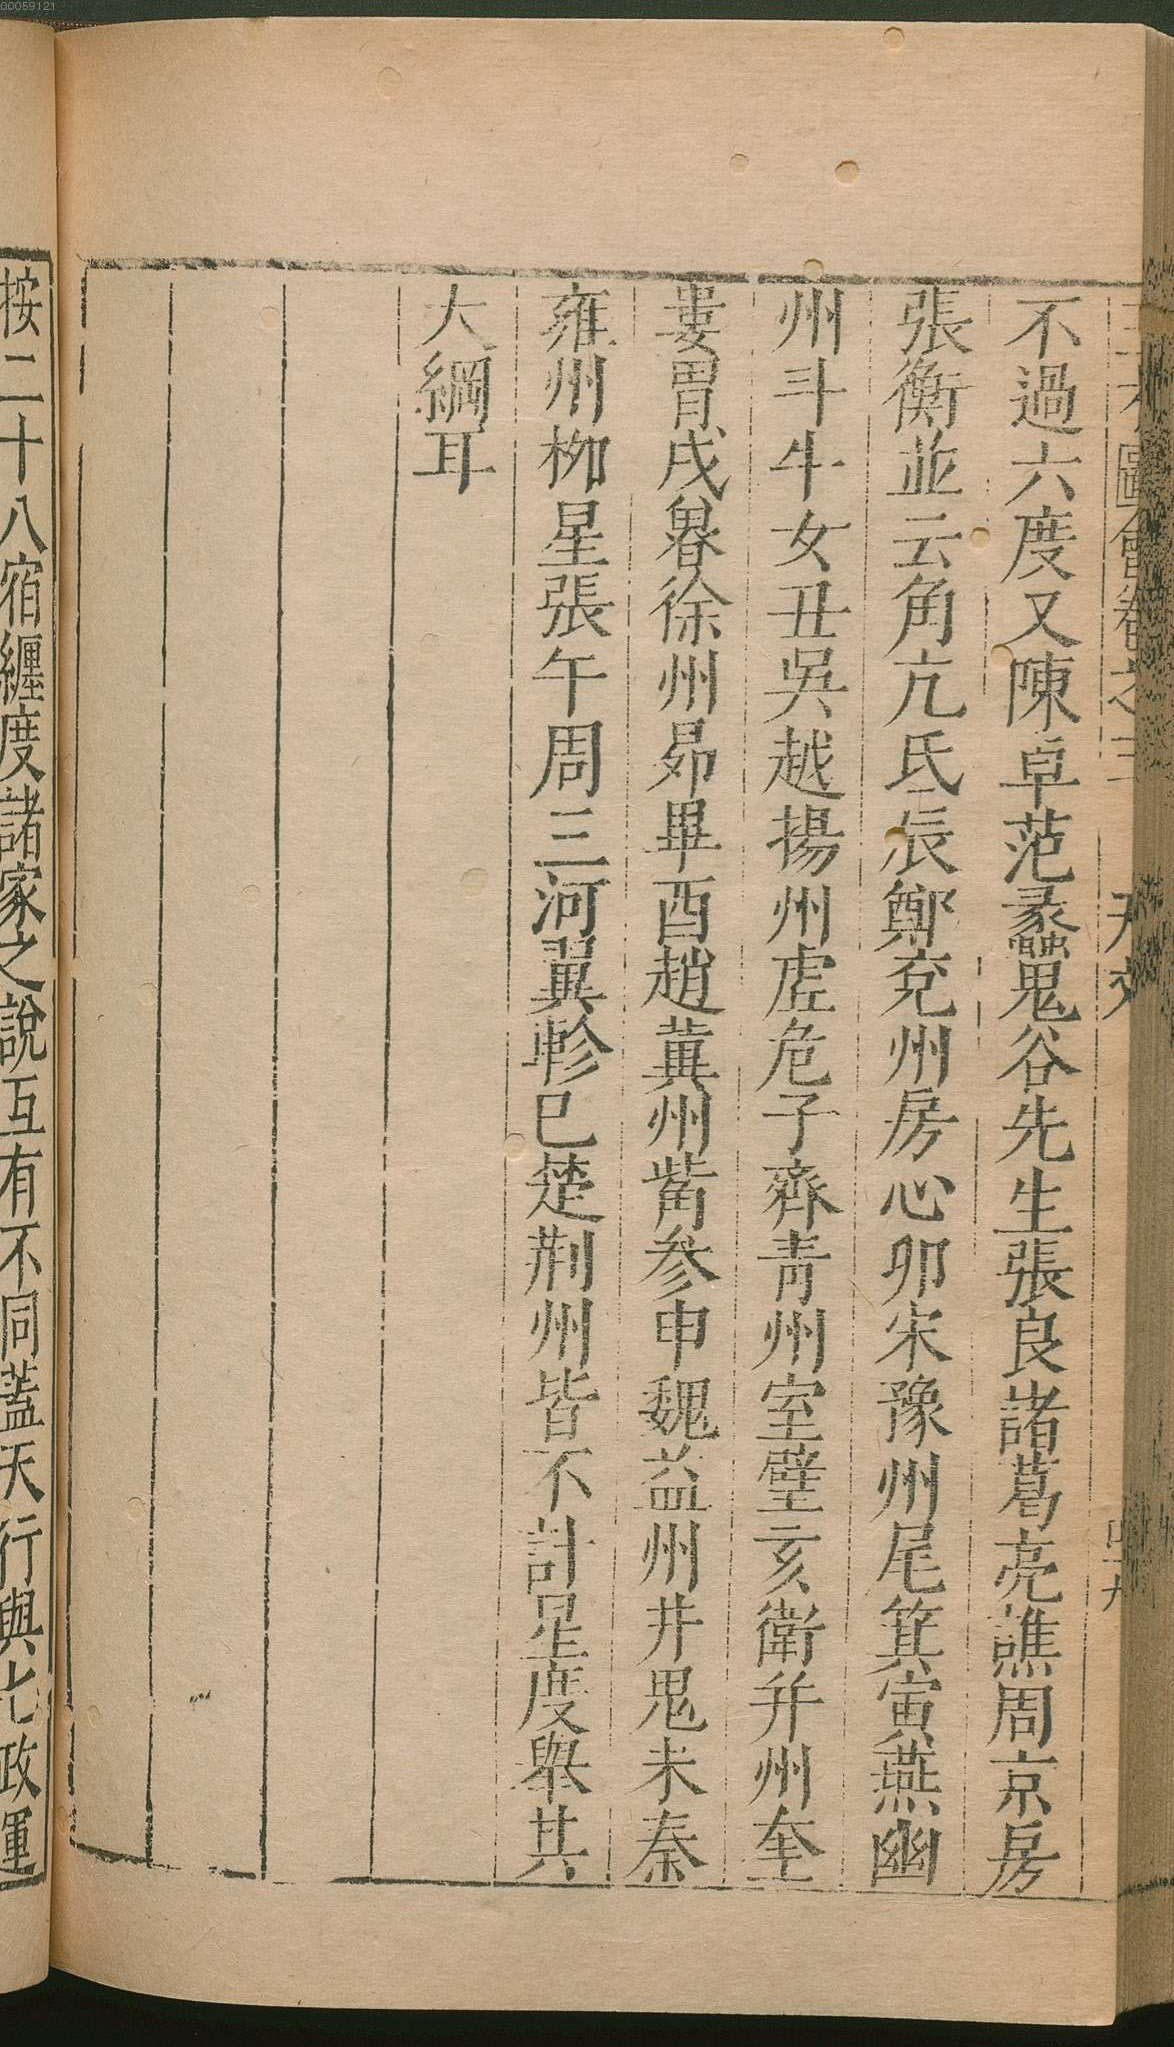 00059121
三才圖會卷之三 天文 四十九
不過六度又陳卓范蠡鬼谷先生張良諸葛亮譙周京房
張衡並云角亢氐辰鄭兗州房心卯宋豫州尾箕寅燕幽
州斗牛女丑吳越揚州虗危子齊青州室壁亥衛并州奎
婁胃戌魯徐州昴畢酉趙冀州觜參申魏益州井鬼未秦
雍州柳星張午周三河翼軫巳楚荆州皆不計星度舉其
大綱耳
按二十八宿纏度諸家之說互有不同蓋天行與七政運